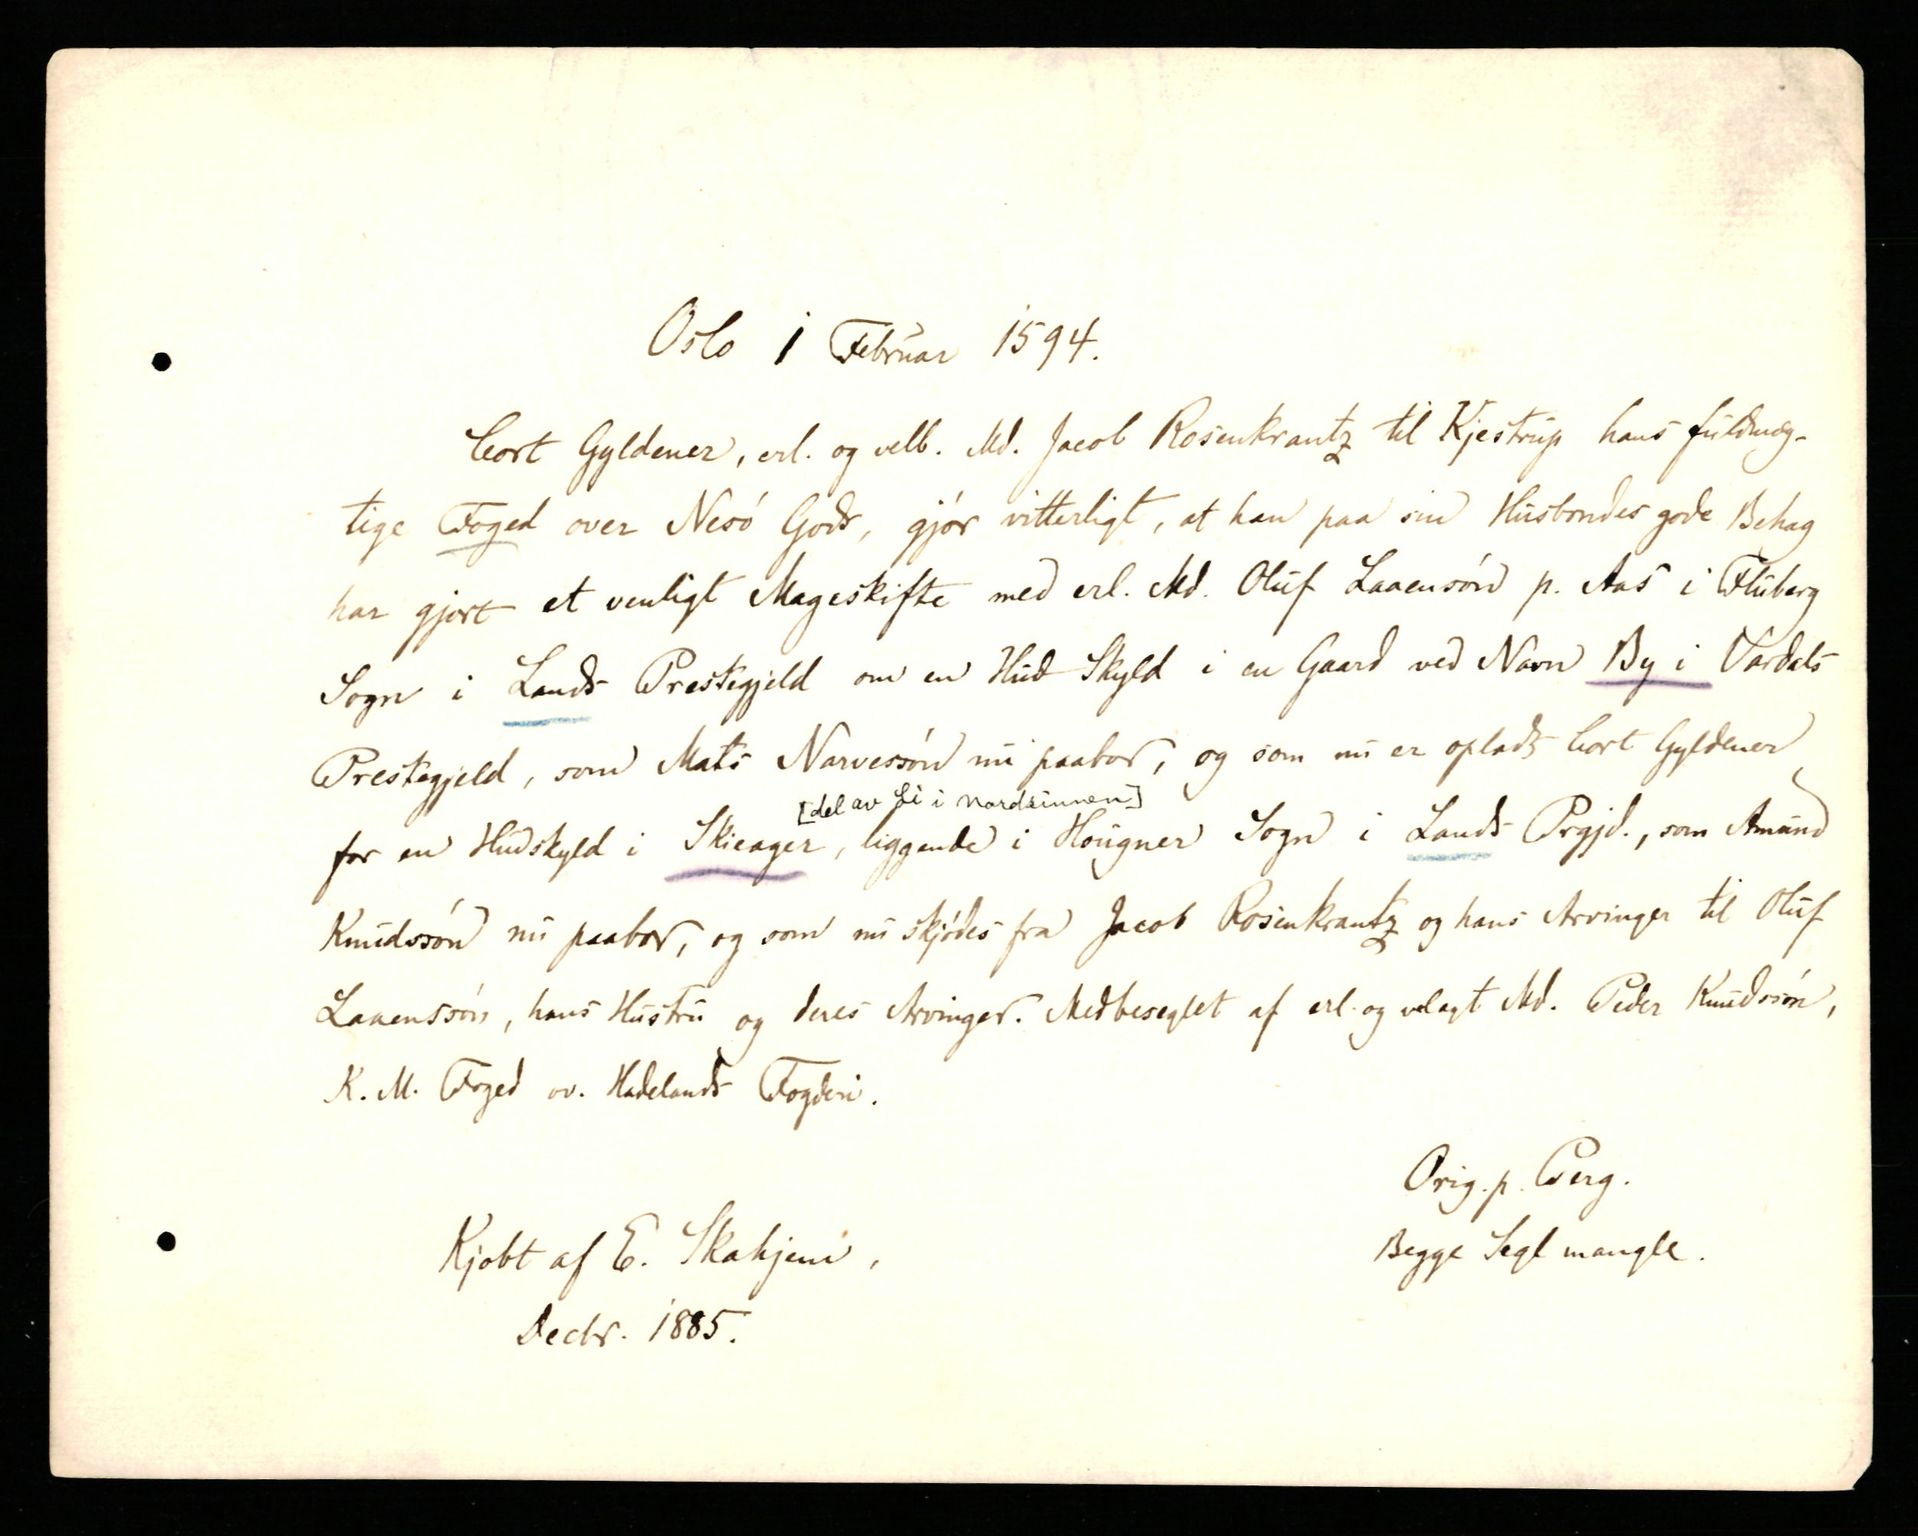 Oslo 1 Februar 1594.
Cort Gyldener, erl. og velb. Md. Jacob Rosenkrantz til Kjestrup hans fuldmæg-
tige Foged over Nesö Gods, gjör vitterligt, at han paa sin Husbondes gode Behag
har gjort et venligt Mageskifte med erl. Md. Oluf Laaensön p. Aas i Fluberg
Sogn i Lands Prestegjeld om en Hud Skyld i en Gaard ved Navn By i Vardals
Prestegjeld, som Mats Narvessön nu paabor, og som nu er opladt Cort Gyldener
[del av Li i Nordsinnen]
for en Hudskyld i Skieager, liggende i Hougner Sogn i Lands Prgjd., som Amund
Knudssön nu paabor, og som nu skjödes fra Jacob Rosenkrantz og hans Arvinger til Oluf
Laaenssön, hans Hustru og deres Arvinger. Medbeseglet af erl. og velagt Md. Peder Knudssön,
K. M. Foged ov. Hadelands Fogderi.
Orig. p. Perg.
Begge Segl mangle.
Kjøbt af E. Skahjem,
Decbr. 1885.